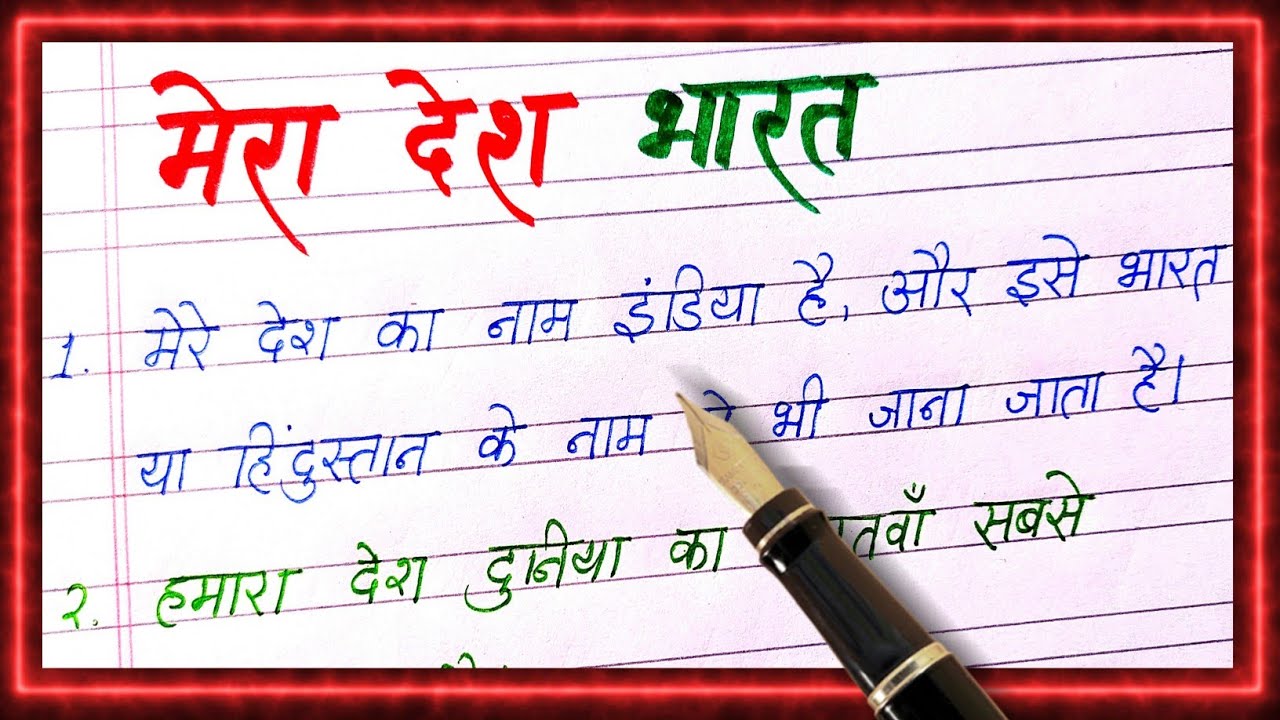 मेरा देश भारत
1. मेरे देश का नाम इंडिया है, और इसे भारत
या हिंदुस्तान के नाम भी जाना जाता है।
२. हमारा देश दुनिया का सबसे